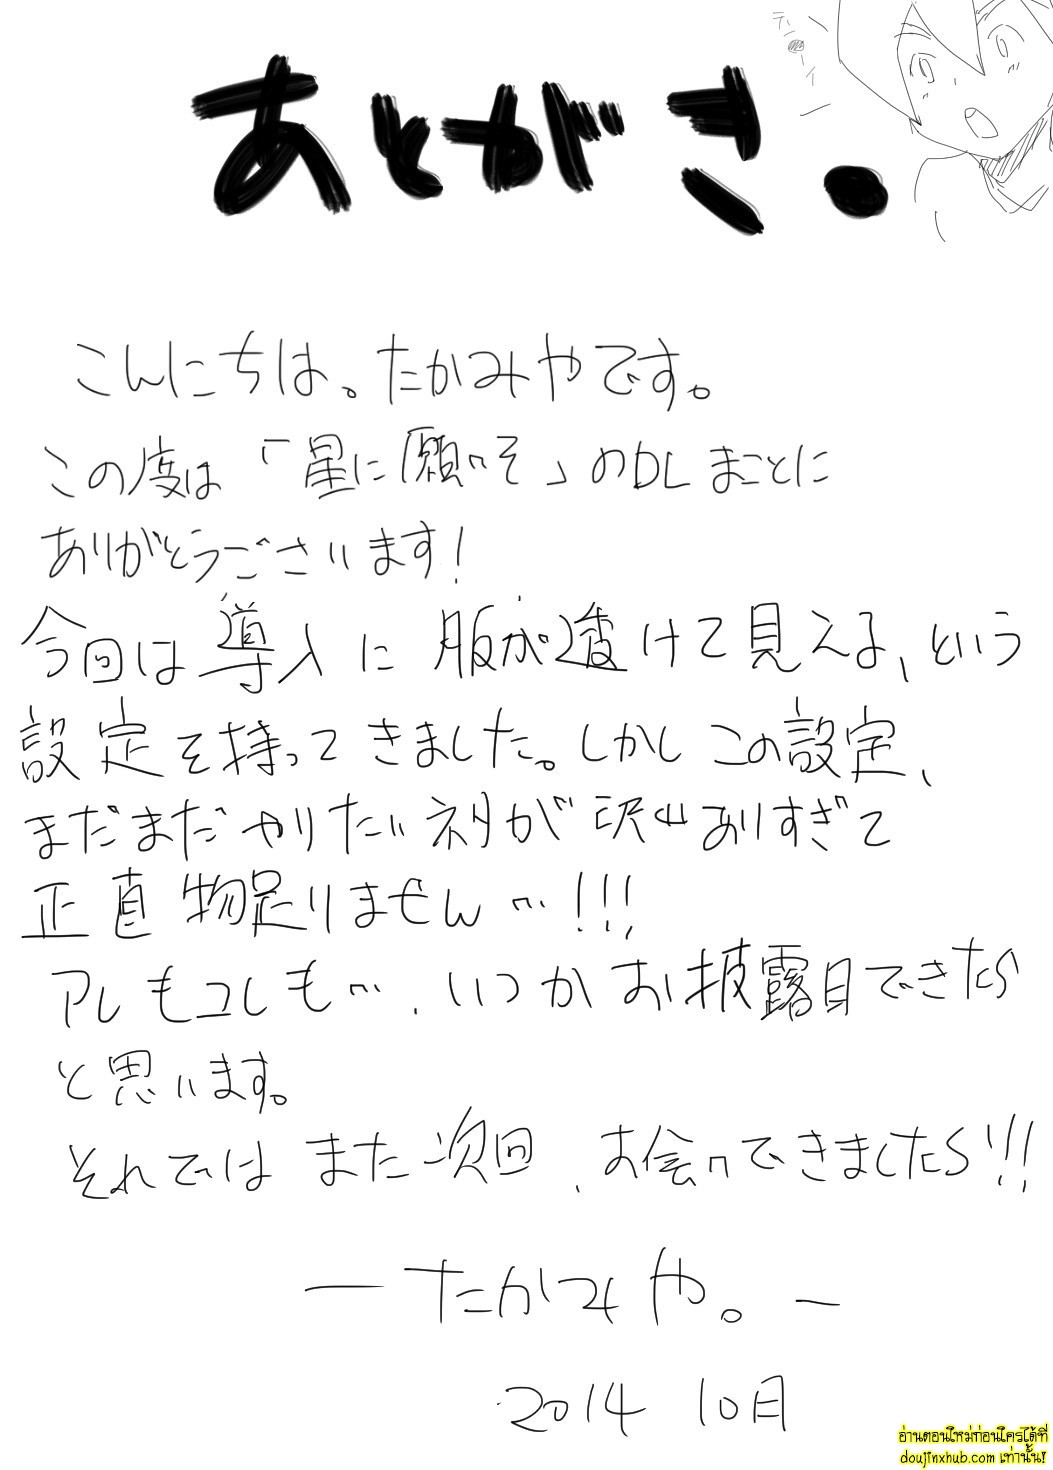 あとがき.
こんにちは。たかみやです。
この度は「星に願いを」のDLまことに
ありがとうございます!
今回は導入に服が透けて見える、という
設定を持ってきました。しかしこの設定、
まだまだやりたいネタが沢山ありすぎて
正直物足りません…!!!
アレもコレも…、いつかお披露目できたら
と思います。
それではまた次回、お会いできましたら!!!
― たかみや。―
2014 10月
อ่านตอนใหม่ก่อนใครได้ที่
doujinxhub.com เท่านั้น!